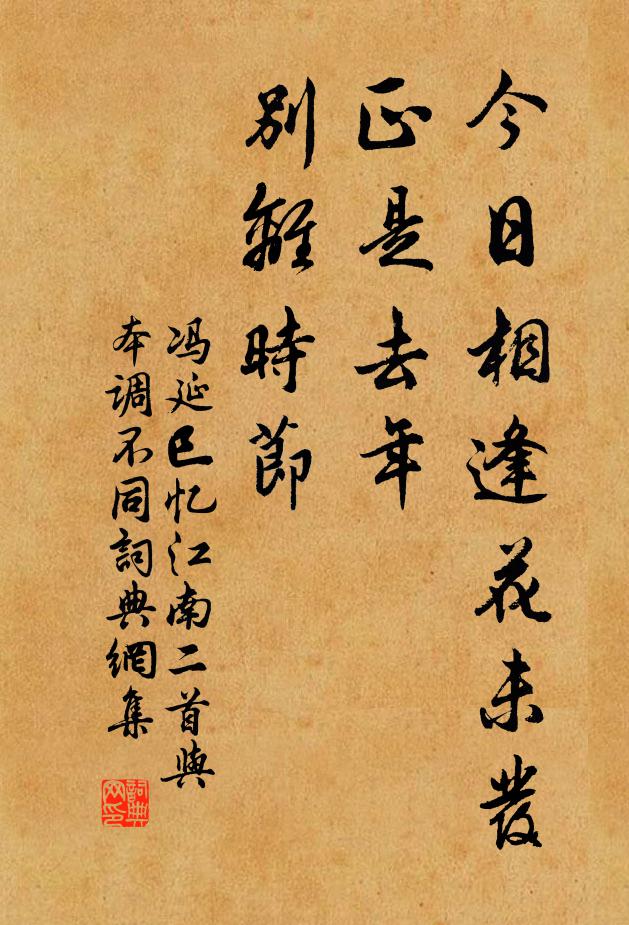 今日相逢花未發
正是去年
別離時節
冯延巳忆江南二首與
本调不同詞典網集
詞典網印